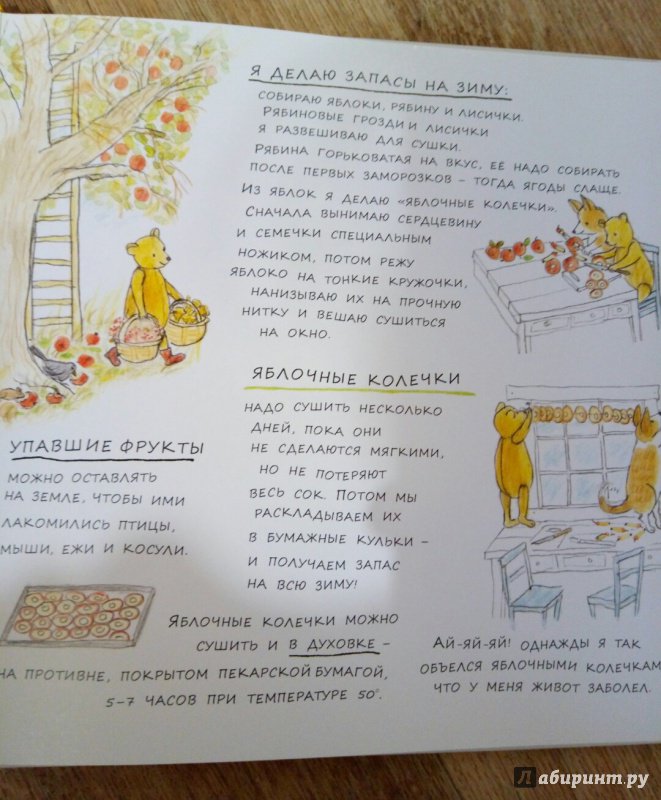 Я ДЕЛАЮ ЗАПАСЫ НА ЗИМУ:
СОБИРАЮ ЯБЛОКИ, РЯБИНУ И ЛИСИЧКИ.
РЯБИНОВЫЕ ГРОЗДИ И ЛИСИЧКИ
Я РАЗВЕШИВАЮ ДЛЯ СУШКИ.
РЯБИНА ГОРЬКОВАТАЯ НА ВКУС, ЕЁ НАДО СОБИРАТЬ
ПОСЛЕ ПЕРВЫХ ЗАМОРОЗКОВ – ТОГДА ЯГОДЫ СЛАЩЕ.
ИЗ ЯБЛОК Я ДЕЛАЮ «ЯБЛОЧНЫЕ КОЛЕЧКИ».
СНАЧАЛА ВЫНИМАЮ СЕРДЦЕВИНУ
И СЕМЕЧКИ СПЕЦИАЛЬНЫМ
НОЖИКОМ, ПОТОМ РЕЖУ
ЯБЛОКО НА ТОНКИЕ КРУЖОЧКИ,
НАНИЗЫВАЮ ИХ НА ПРОЧНУЮ
НИТКУ И ВЕШАЮ СУШИТЬСЯ
НА ОКНО.
ЯБЛОЧНЫЕ КОЛЕЧКИ
НАДО СУШИТЬ НЕСКОЛЬКО
ДНЕЙ, ПОКА ОНИ
НЕ СДЕЛАЮТСЯ МЯГКИМИ,
НО НЕ ПОТЕРЯЮТ
ВЕСЬ СОК. ПОТОМ МЫ
РАСКЛАДЫВАЕМ ИХ
В БУМАЖНЫЕ КУЛЬКИ –
И ПОЛУЧАЕМ ЗАПАС
НА ВСЮ ЗИМУ!
УПАВШИЕ ФРУКТЫ
МОЖНО ОСТАВЛЯТЬ
НА ЗЕМЛЕ, ЧТОБЫ ИМИ
ЛАКОМИЛИСЬ ПТИЦЫ,
МЫШИ, ЕЖИ И КОСУЛИ.
ЯБЛОЧНЫЕ КОЛЕЧКИ МОЖНО
СУШИТЬ И В ДУХОВКЕ –
НА ПРОТИВНЕ, ПОКРЫТОМ ПЕКАРСКОЙ БУМАГОЙ,
5–7 ЧАСОВ ПРИ ТЕМПЕРАТУРЕ 50°.
АЙ-ЯЙ-ЯЙ! ОДНАЖДЫ Я ТАК
ОБЪЕЛСЯ ЯБЛОЧНЫМИ КОЛЕЧКАМ
ЧТО У МЕНЯ ЖИВОТ ЗАБОЛЕЛ.
Лабиринт.ру